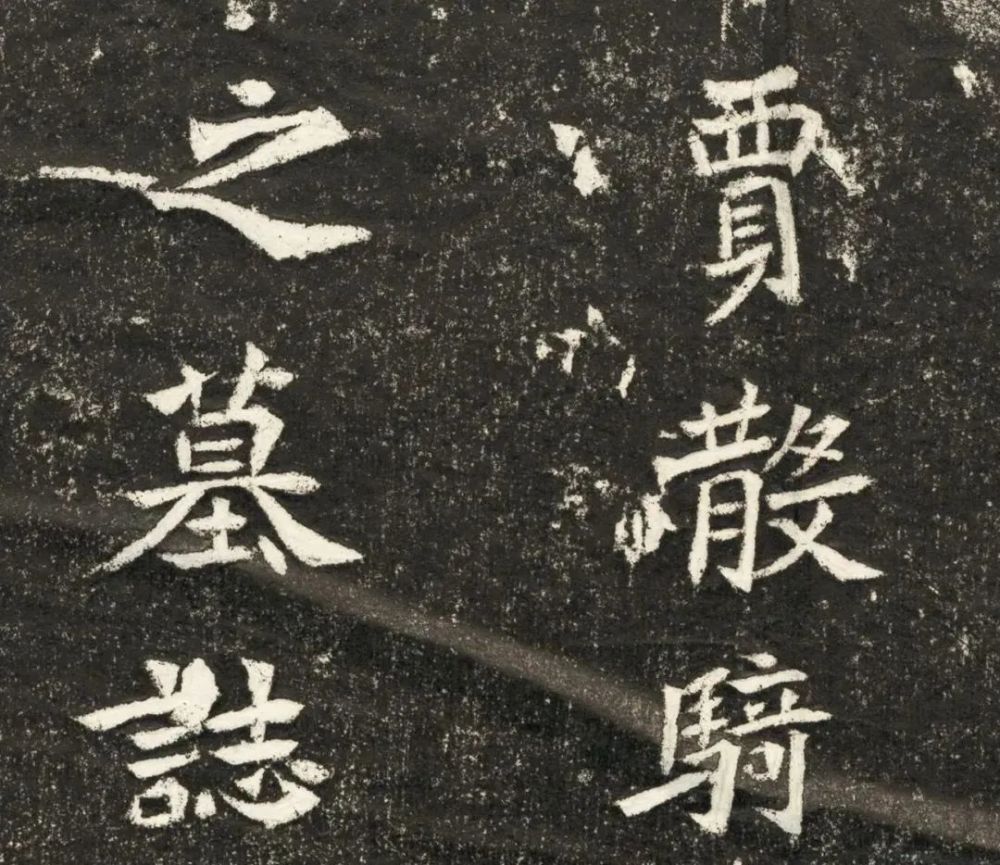 賈散騎
之墓誌